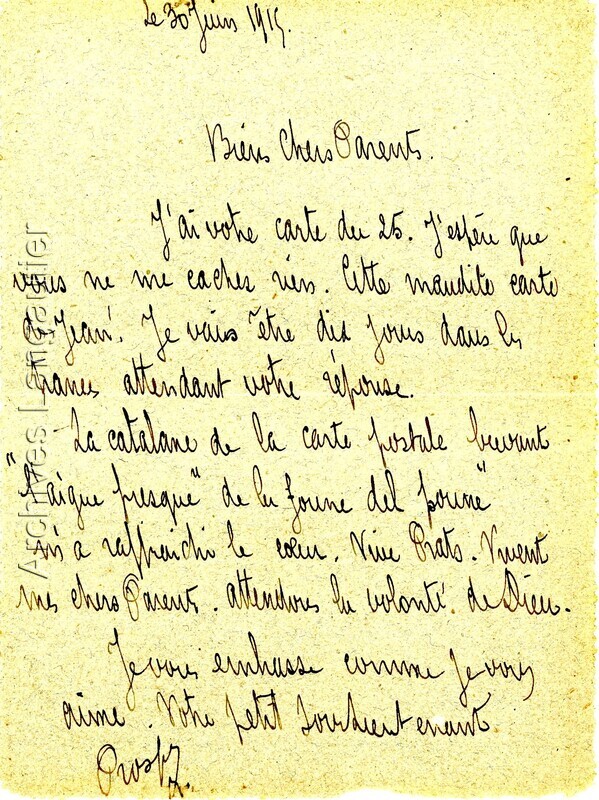 Le 30 Juin 1915.
Biens Chers Parents.
J'ai votre carte du 25. J'espère que
vous ne me caches rien. Cette maudite carte
de Jean. Je vais être dix jours dans les
trances attendant votre réponse.
La catalane de la carte postale buvant
"l'aigue fresque" de la foune del
m'a raffraichi le cœur. Vive Prats. Vivent
mes chers Parents. attendons la volonté de Dieu.
Je vous embrasse comme je vous
aime. Votre petit
Prosp
Archives Lang